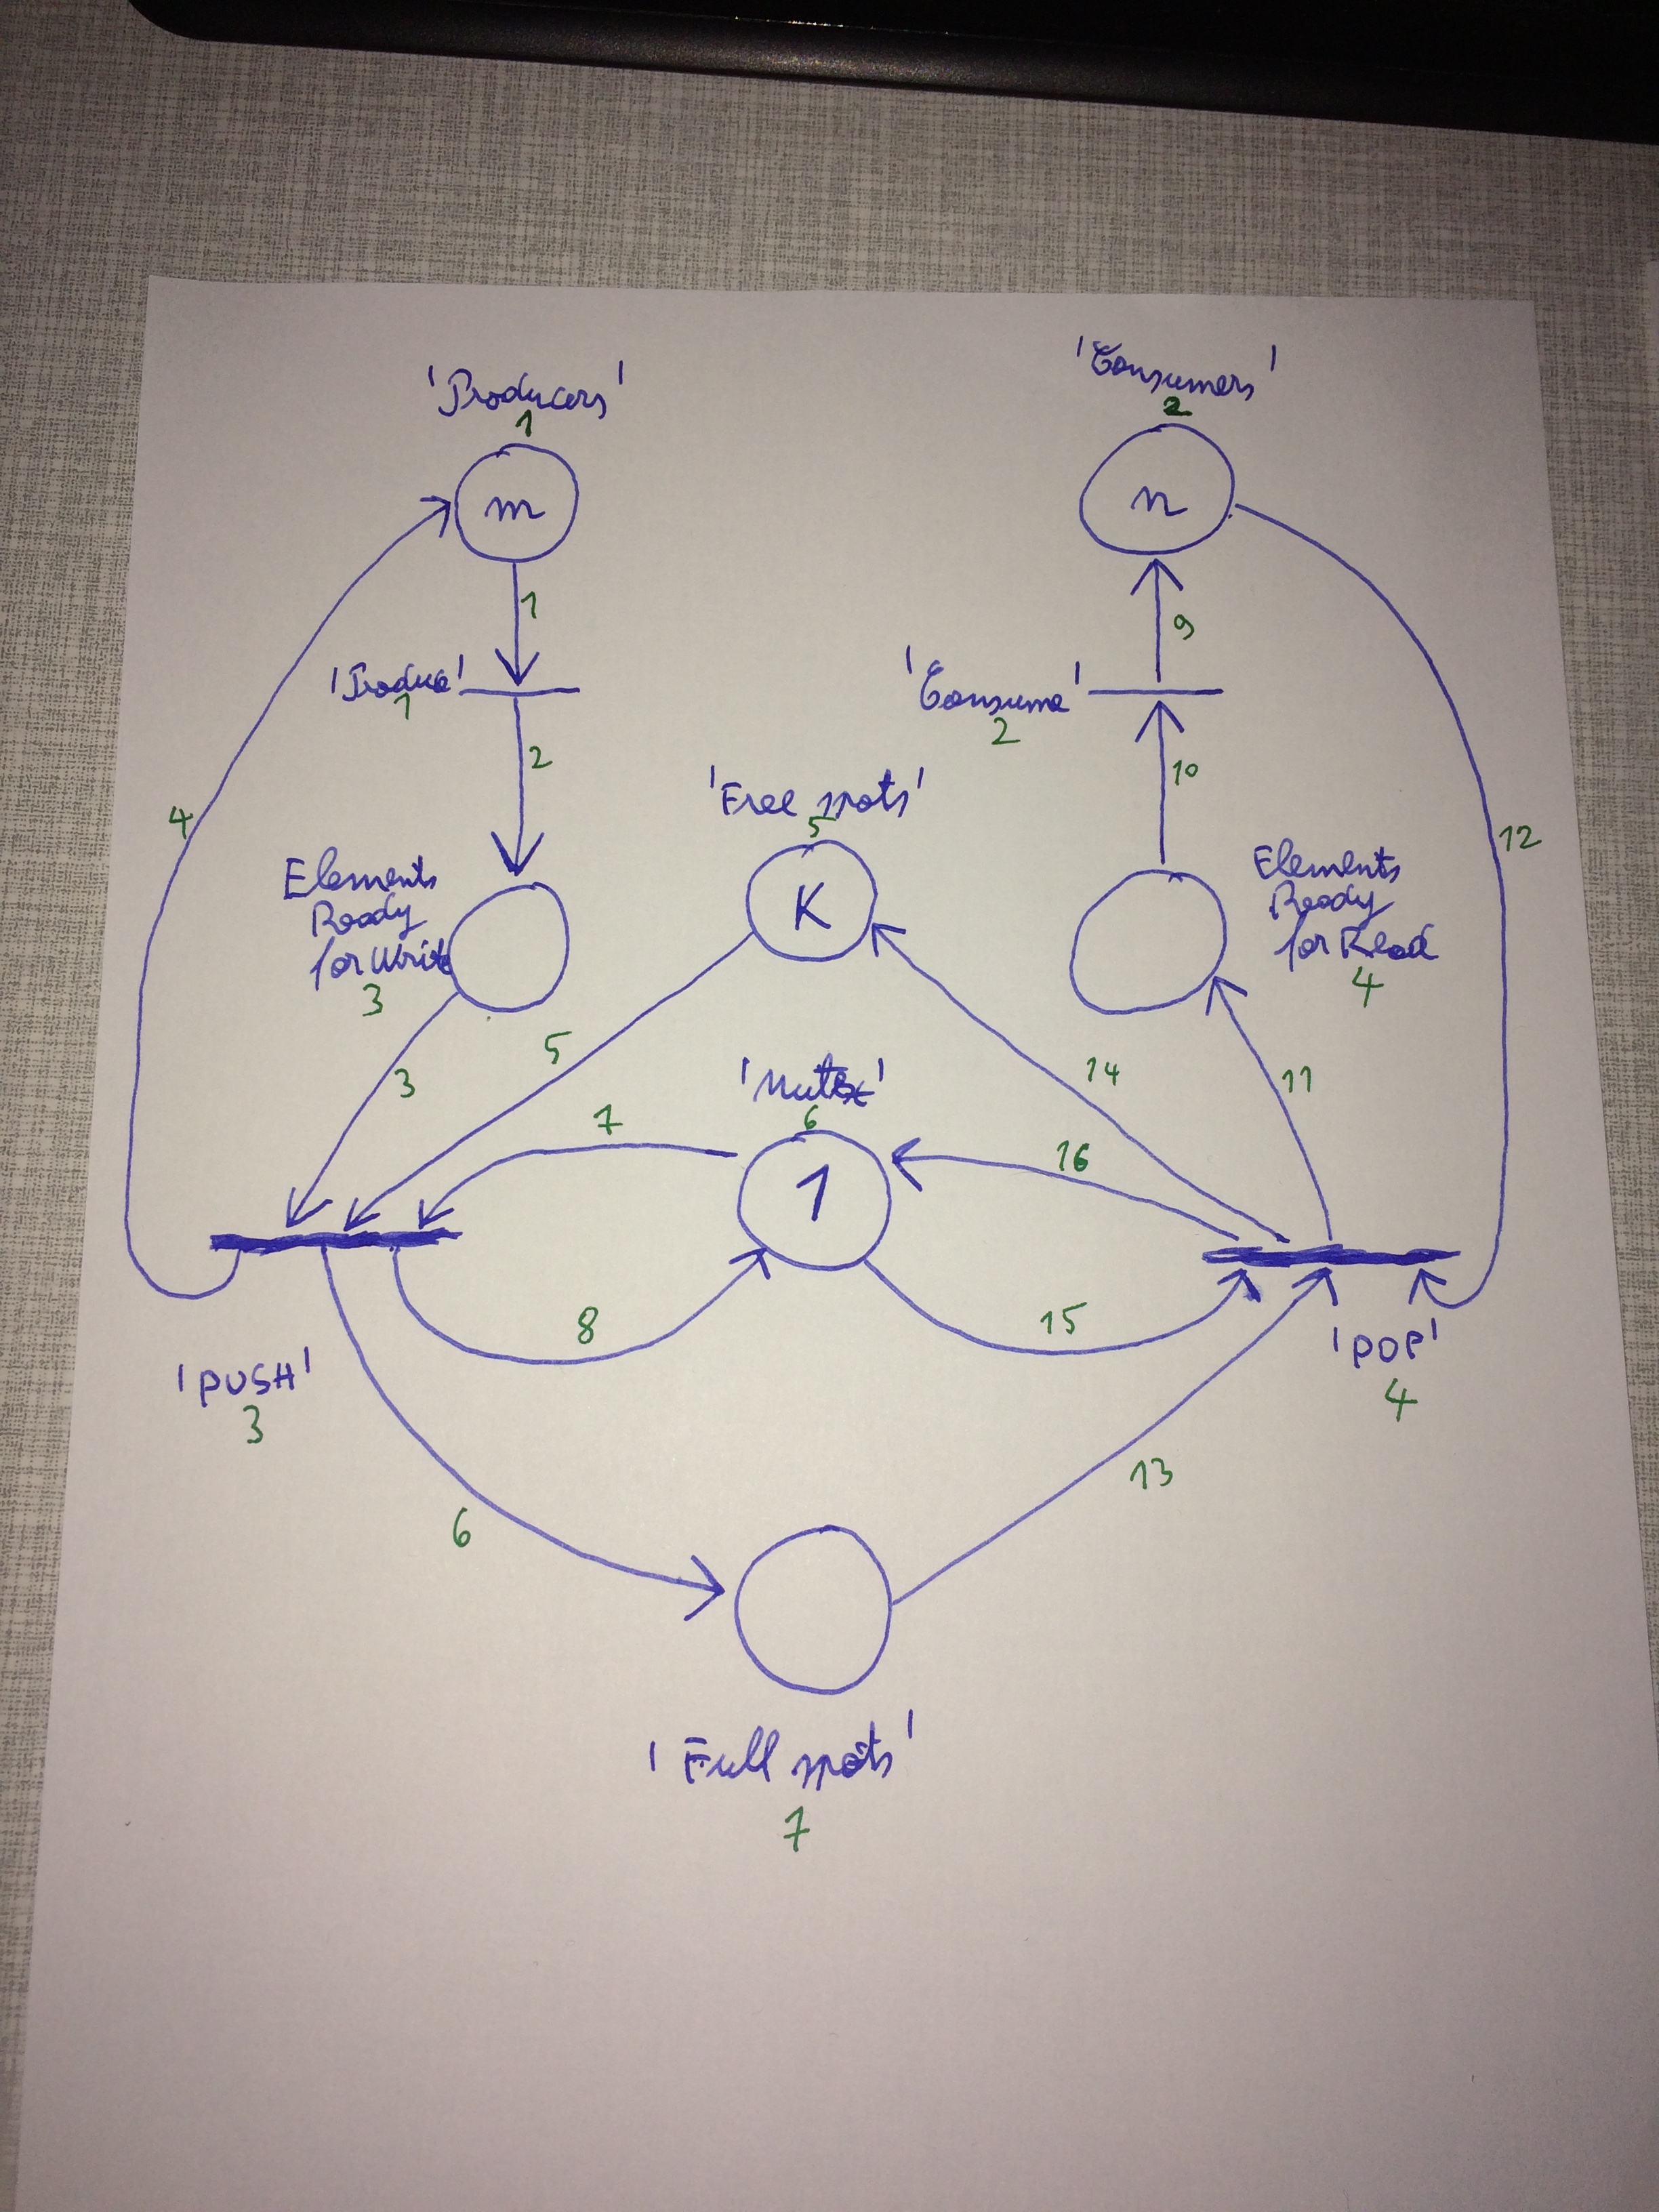 'Producers'
1
m
'Consumers'
2
n
1
9
'Produce'
1
'Consume'
2
2
10
4
'Free spots'
5
K
12
Elements
Ready
for Write
3
Elements
Ready
for Read
4
3
5
14
11
'Mutex'
6
7
1
16
8
15
'PUSH'
3
'POP'
4
6
13
'Full spots'
7